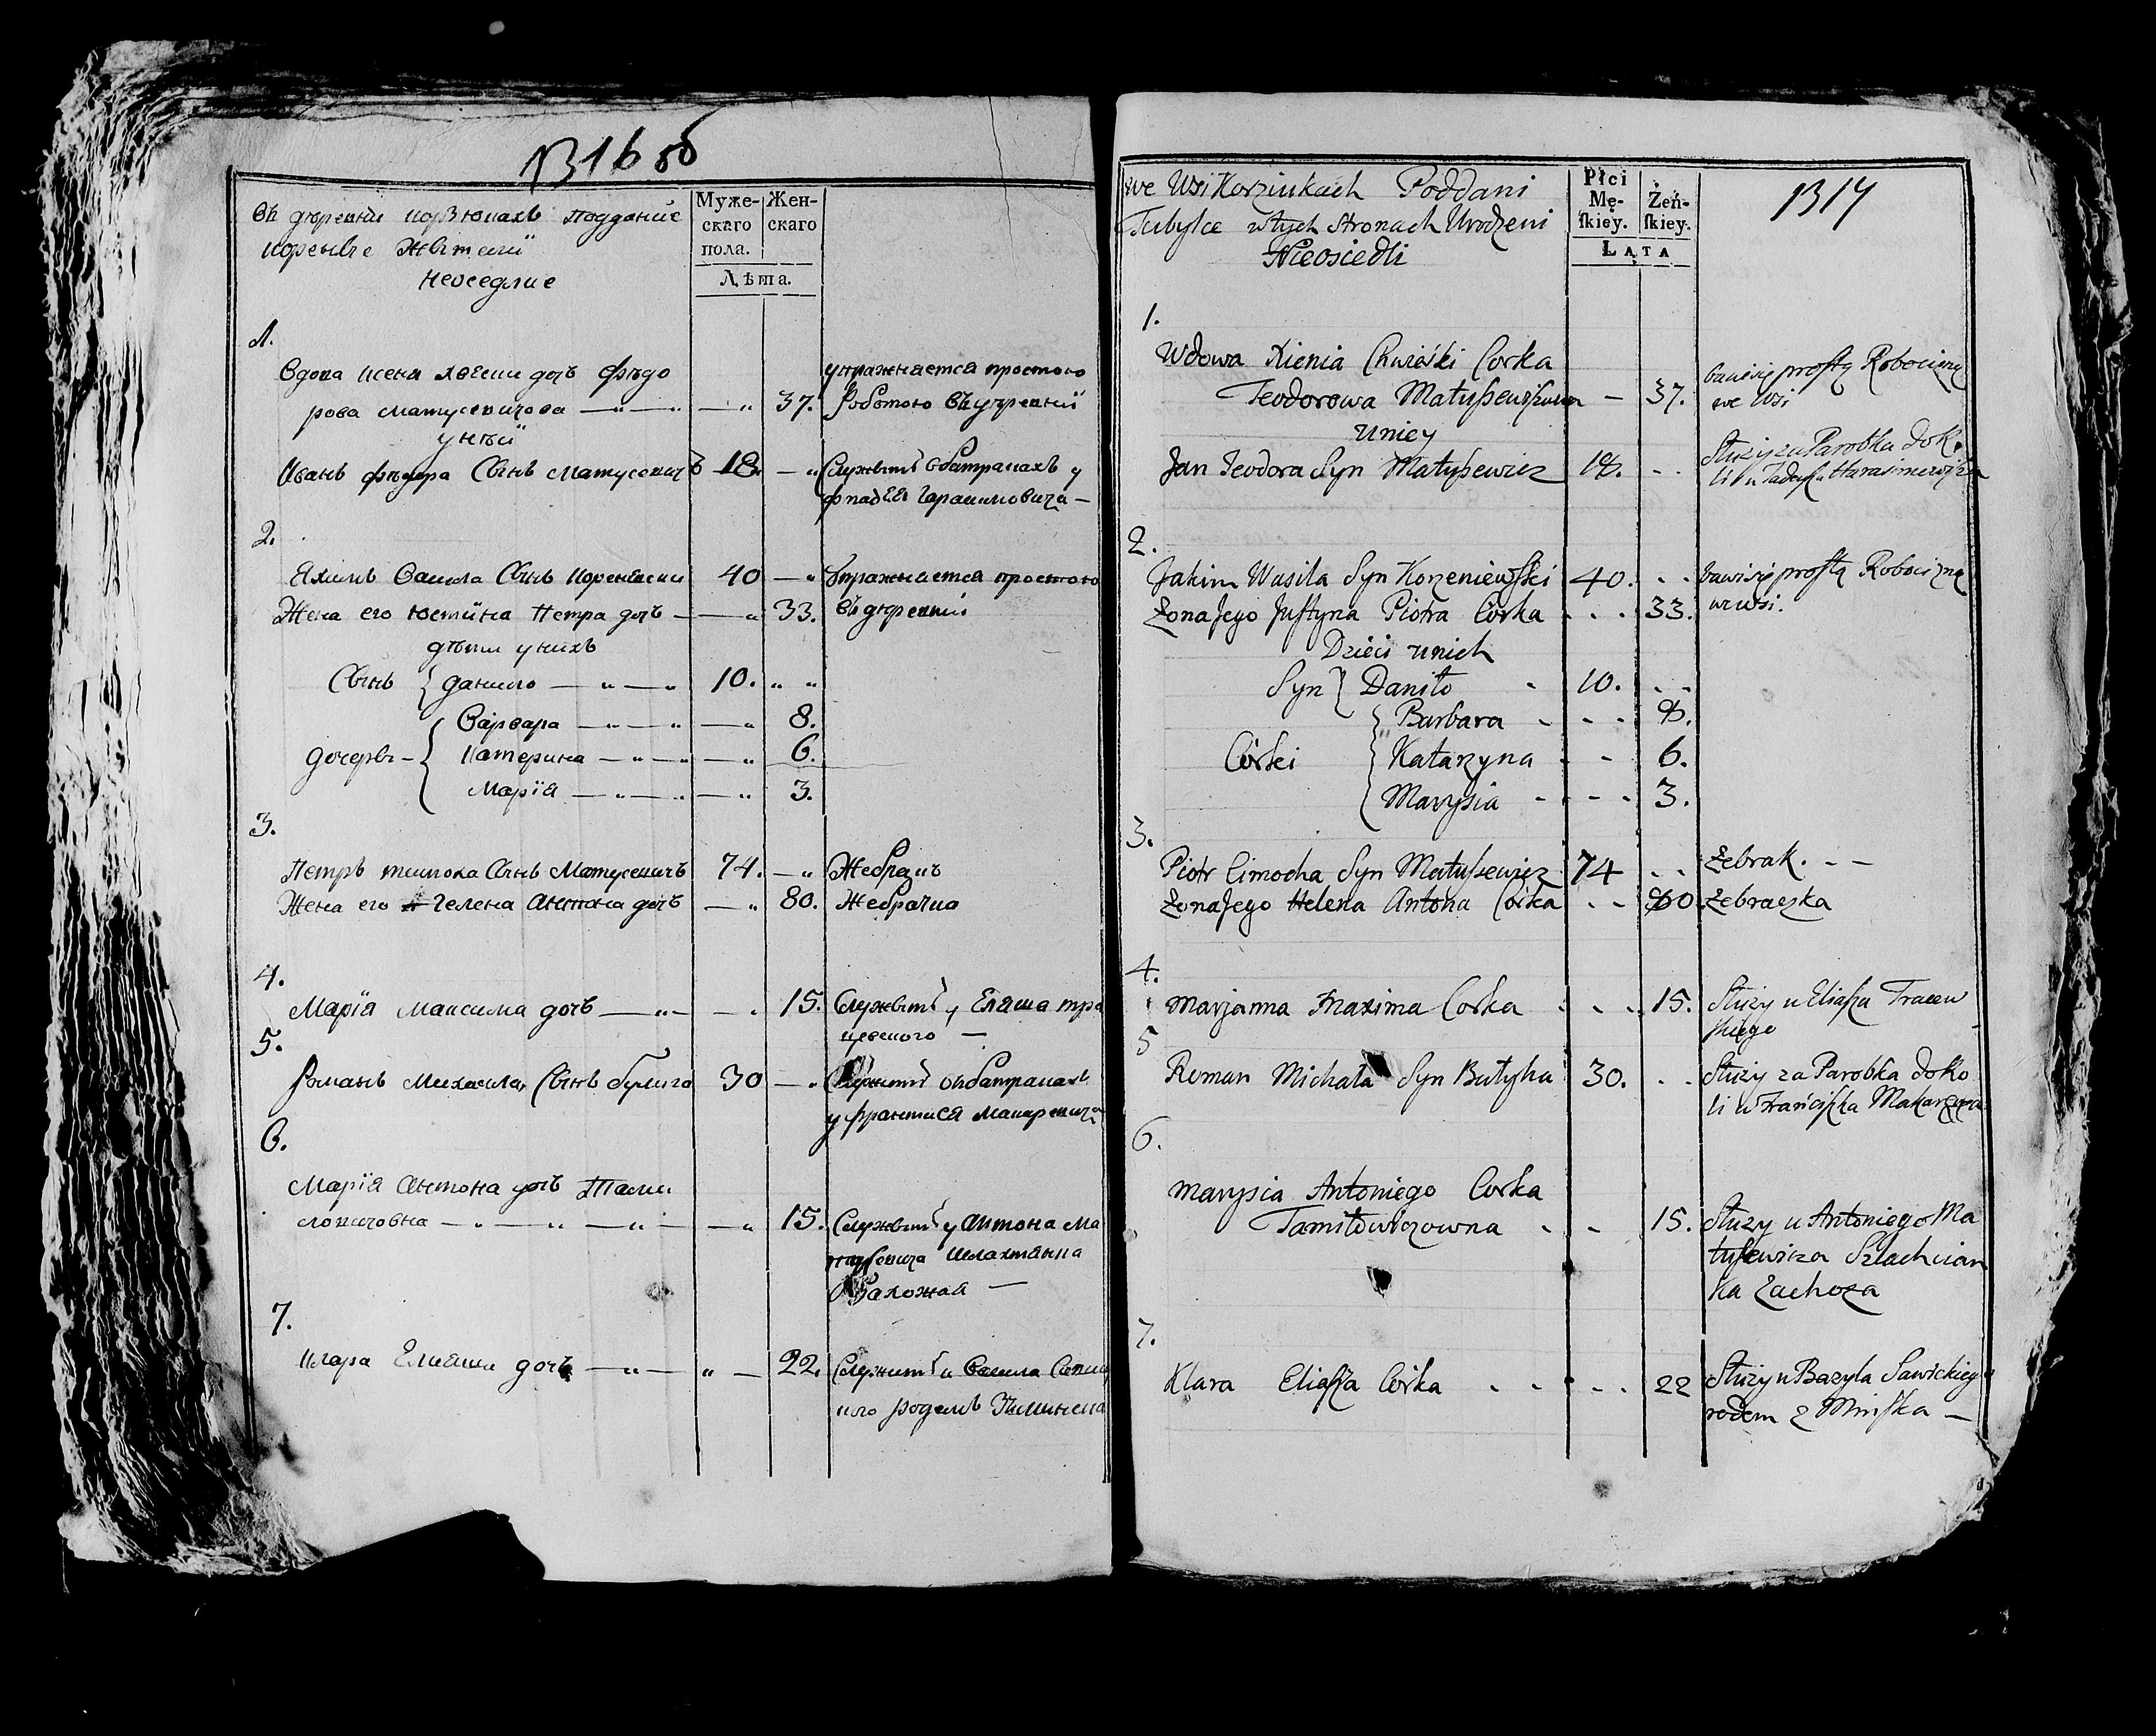 1316 об
въ дѣревни корзюкахъ подданіе
коренніе жители
неоседлие
Муже-
скаго
пола.
Жен-
скаго
Лѣта.
1.
Вдова ксеня хвески дочъ фѣдо
рова матусевичова — 37.
упражняется простою
работою въ дѣревни
у нѣй
Иванъ фѣдора Сынъ Матусевичъ 18.
Служытъ въ батракахъ у
фадея гарасимовича —
2.
Яхимъ Васила Сынъ Корженевски 40
Упражняется простою
Жена его юстина Петра дочъ — 33.
въ дѣревни
дѣти у нихъ
Сынъ { данило — 10.
Варвара — 8.
дочеры — { Катерина — 6.
Марія — 3.
3.
Петръ тимоха Сынъ Матусевичъ 74. Жебракъ
Жена его гелена Антона дочъ — 80. Жебрачка
4.
Марія Максима дочъ — 15. Служытъ у Еляша тра
цевского —
5.
Романъ Михайла Сынъ булыга 30
Служытъ въ батракахъ
у франтися Макаревича
6.
Марія Антона дочъ Тами
ловичовна — 15. Служытъ у Антона Ма
тусевича шляхтянка
Захожая —
7.
Клара Елияши дочъ — 22. Служитъ у Васила Савиц
кого родомъ з Минска
1317
we Wsi Korziukach Poddani
Tubylce w tych stronach Urodzeni
Nieosiedli
Płci
Mę-
ſkiey.
Żeń-
ſkiey.
LATA
1.
Wdowa Xienia Chwieśki Corka
Teodorowa Matuſzewiczowa — 37.
bawi się proſtą Robocizną
we Wsi
u niey
Jan Teodora Syn Matuſzewicz 18. - -
Służy za Parobka doko
li u Tadeuſza Harasimowicza
2.
Jakim Wasila Syn Korzeniewſki 40. - - bawi się proſtą Robocizną
Żona Jego Juſtyna Piotra Córka - - - 33. we wsi.
Dzieci u nich
Syn } Daniło - 10. - -
{ Barbara - - - 8.
Córki { Katarzyna - - 6.
{ Marysia - - - 3.
3.
Piotr Cimocha Syn Matuſzewicz 74 - - Żebrak. - —
Żona Jego Helena Antona Córka - - 80 Żebraczka
4.
Marjanna Maxima Corka - - - 15. Służy u Eliaſza Tracew
ſkiego
5
Roman Michała Syn Bułyha 30. - - Służy za Parobka doko
li u Franciſzka Makarewicza
6.
Marysia Antoniego Corka
Tamiłowiczowna - - 15. Służy u Antoniego Ma
tuſzewicza Szlachcian
ka Zachoza
7.
Klara Eliaſza Córka - - - - 22 Służy u Bazyla Sawickiego
rodem z Minſka —